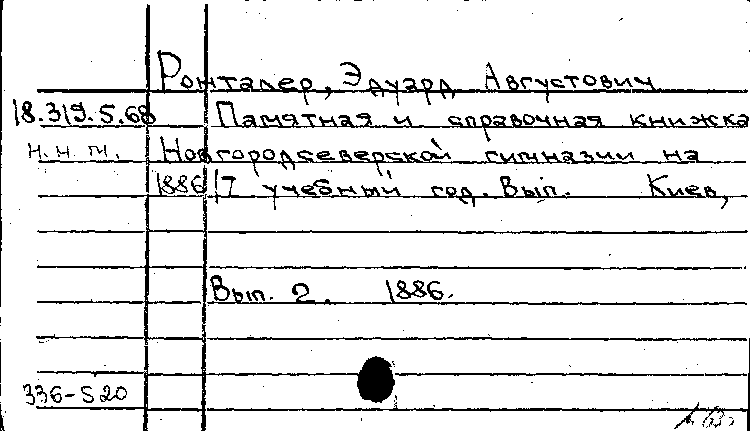 Ронталер, Эдуард Августович
18.319.5.68 Памятная и справочная книжка
н.н.т. Новгородсеверской гимназии на
1886/7 учебный год. Вып. Киев,
Вып. 2. 1886.
336-520